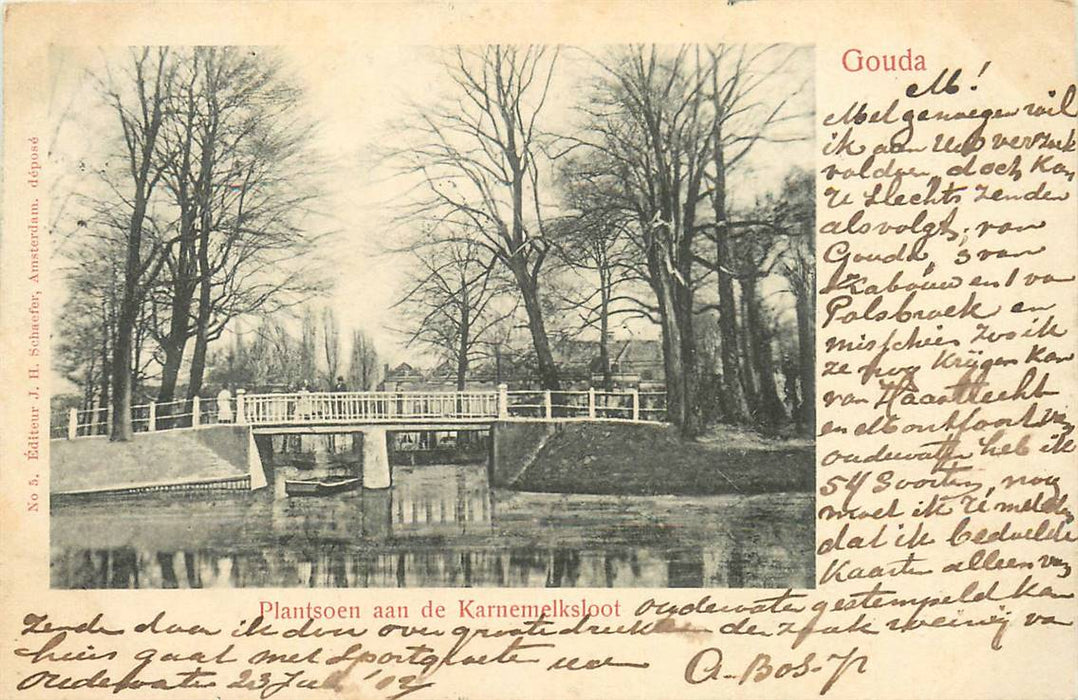 Gouda
M!
Met genoegen wil
ik aan Uw verzoek
voldoen, doch kan
U slechts zenden
als volgt, van
Gouda, 3 van
en 1 van
Polsbroek en
misschien zoo ik
ze nog krijgen kan
van Haastrecht
en Montfoort van
oudewater heb ik
54 Soorten, nog
moet ik U melden
dat ik bedoelde
Kaarten alleen van
oudewater gestempeld kan
zenden daar ik don over groote drukken der zaak weinig van
huis gaat met Sportgroeten uw
Oudewater 23 Juli '02
A. Bos. Jr
Plantsoen aan de Karnemelksloot
No 5. Éditeur J. H. Schaefer, Amsterdam. déposé